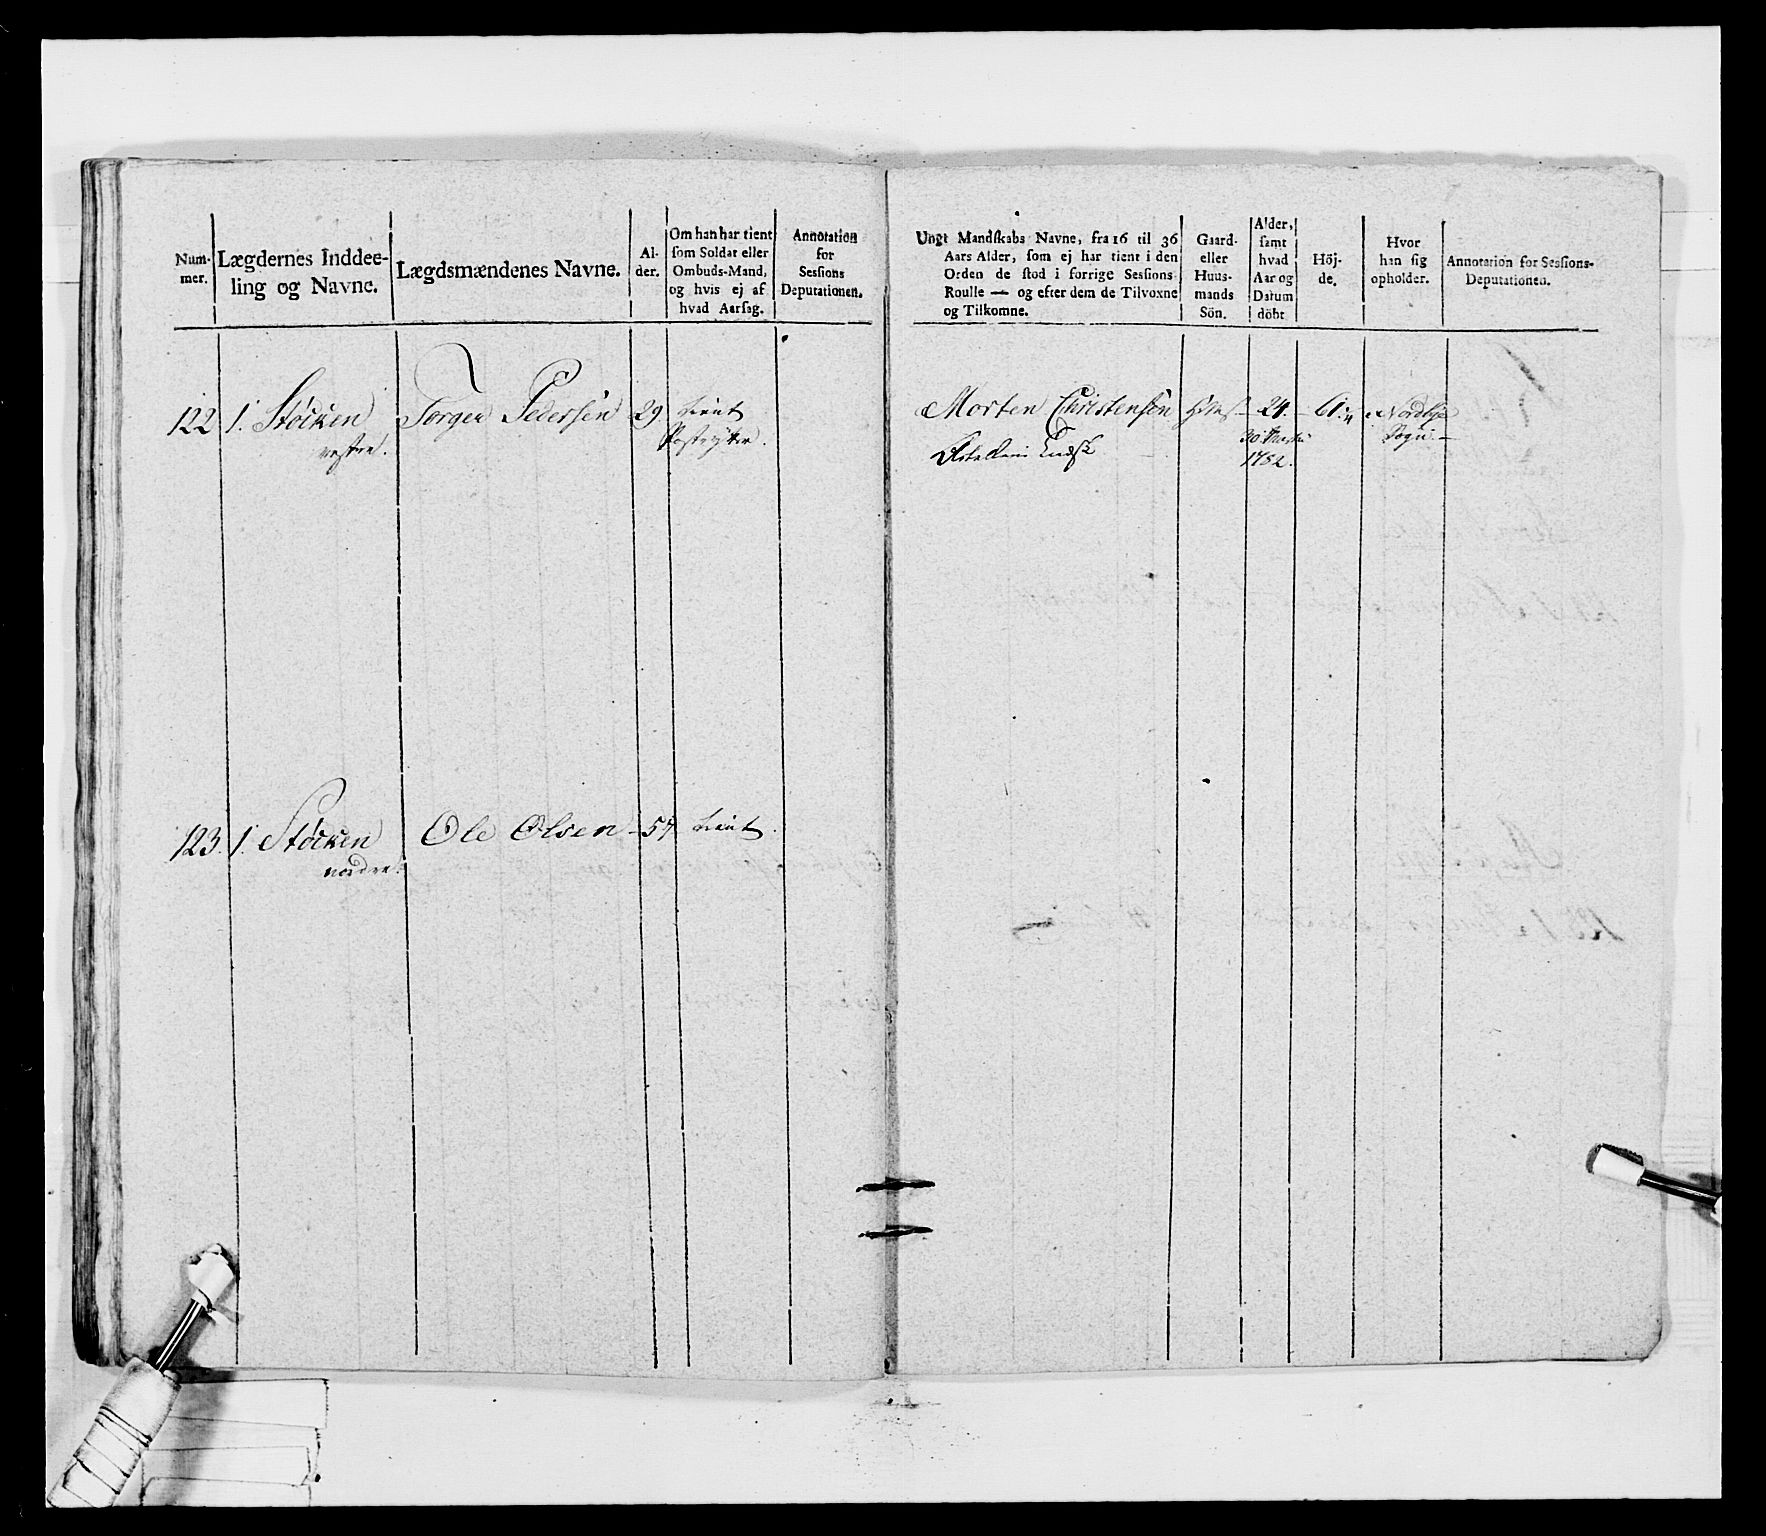 Num-
mer.
Lægdernes Inddee-
ling og Navne.
Lægdsmændenes Navne.
Al-
der.
Om han har tient
som Soldat eller
Ombuds-Mand,
og hvis ej af
hvad Aarsag.
Annotation
for
Sessions
Deputationen.
122 1. Støcken Torger Pedersen 29. tient
vestre.
123. 1. Støcken Ole Olsen - 57 tient.
nordre.
Ungt Mandskabs Navne, fra 16 til 36
Aars Alder, som ej har tient i den
Orden de stod i forrige Sessions
Roulle — og efter dem de Tilvoxne
og Tilkomne.
Gaard-
eller
Huus-
mands
Sön.
Alder,
samt
hvad
Aar og
Datum
döbt
Höj-
de.
Hvor
han sig
opholder.
Annotation for Sessions-
Deputationen.
Morten Christensen 24. 61.
Sogn.
1782.